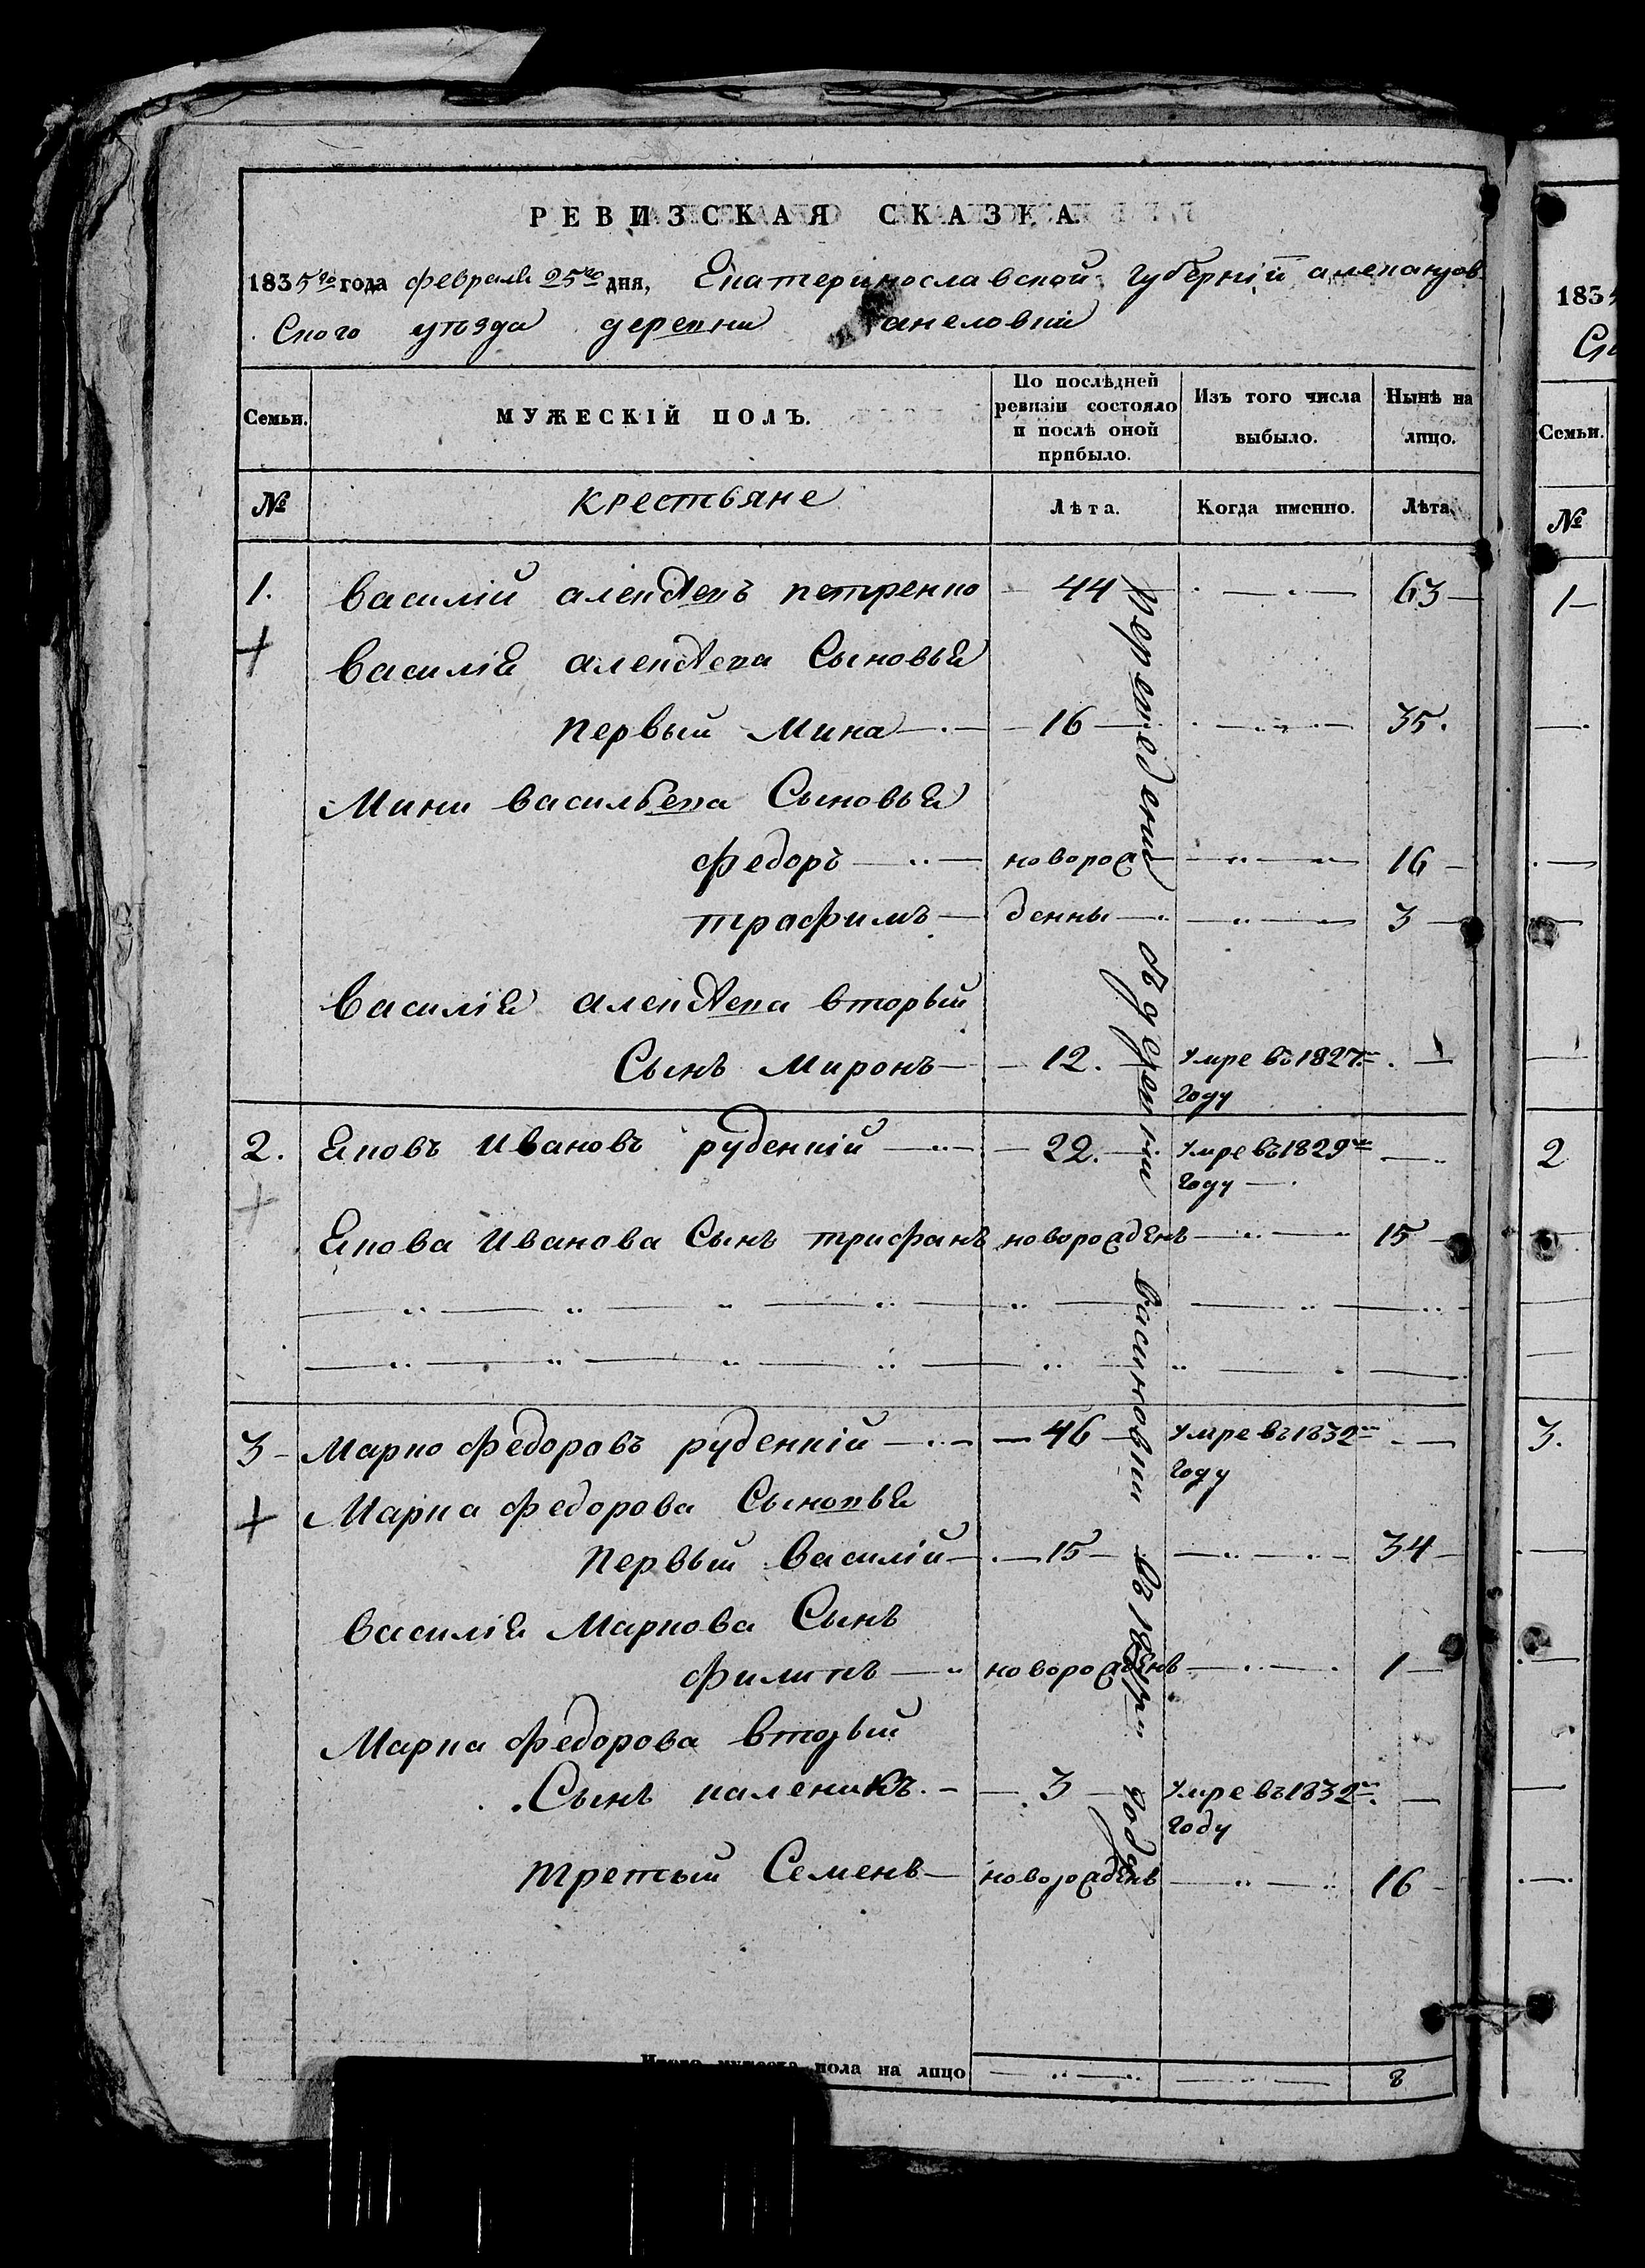 РЕВИЗСКАЯ СКАЗКА
1835го года февраля 25го дня, Екатеринославской губерніи александров
Ского уѣзда деревни анеловки
Семьи.
МУЖЕСКІЙ ПОЛЪ.
По послѣдней ревизіи состояло и послѣ оной прибыло.
Изъ того числа выбыло.
Нынѣ на лицо.
№
крестьяне
Лѣта.
Когда именно.
Лѣта.
1. Василій алексѣевъ петренко 44 63
Василія алексѣева Сыновья
первый Мина 16 35.
Мини васильева Сыновья
федоръ новорож 16
трафимъ денны 3
Василія алексѣева вторый
Сынъ Миронъ 12. умре въ 1827м
году
2. Яковъ Ивановъ руденкій 22. умре въ 1829м
году
Якова Иванова Сынъ трифанъ новорожденъ 15
3 Марко федоровъ руденкій 46 умре въ 1832м
году
Марка федорова Сыновья
первый Василій 15 34
Василія Маркова Сынъ
филипъ новорожденъ 1
Марка федорова вторый
Сынъ каленикъ. 3 умре въ 1832м
году
третый Семенъ новорожденъ 16
переведены
въ
году
пола на лицо 8
1835
Семьи.
№
1
2
3.